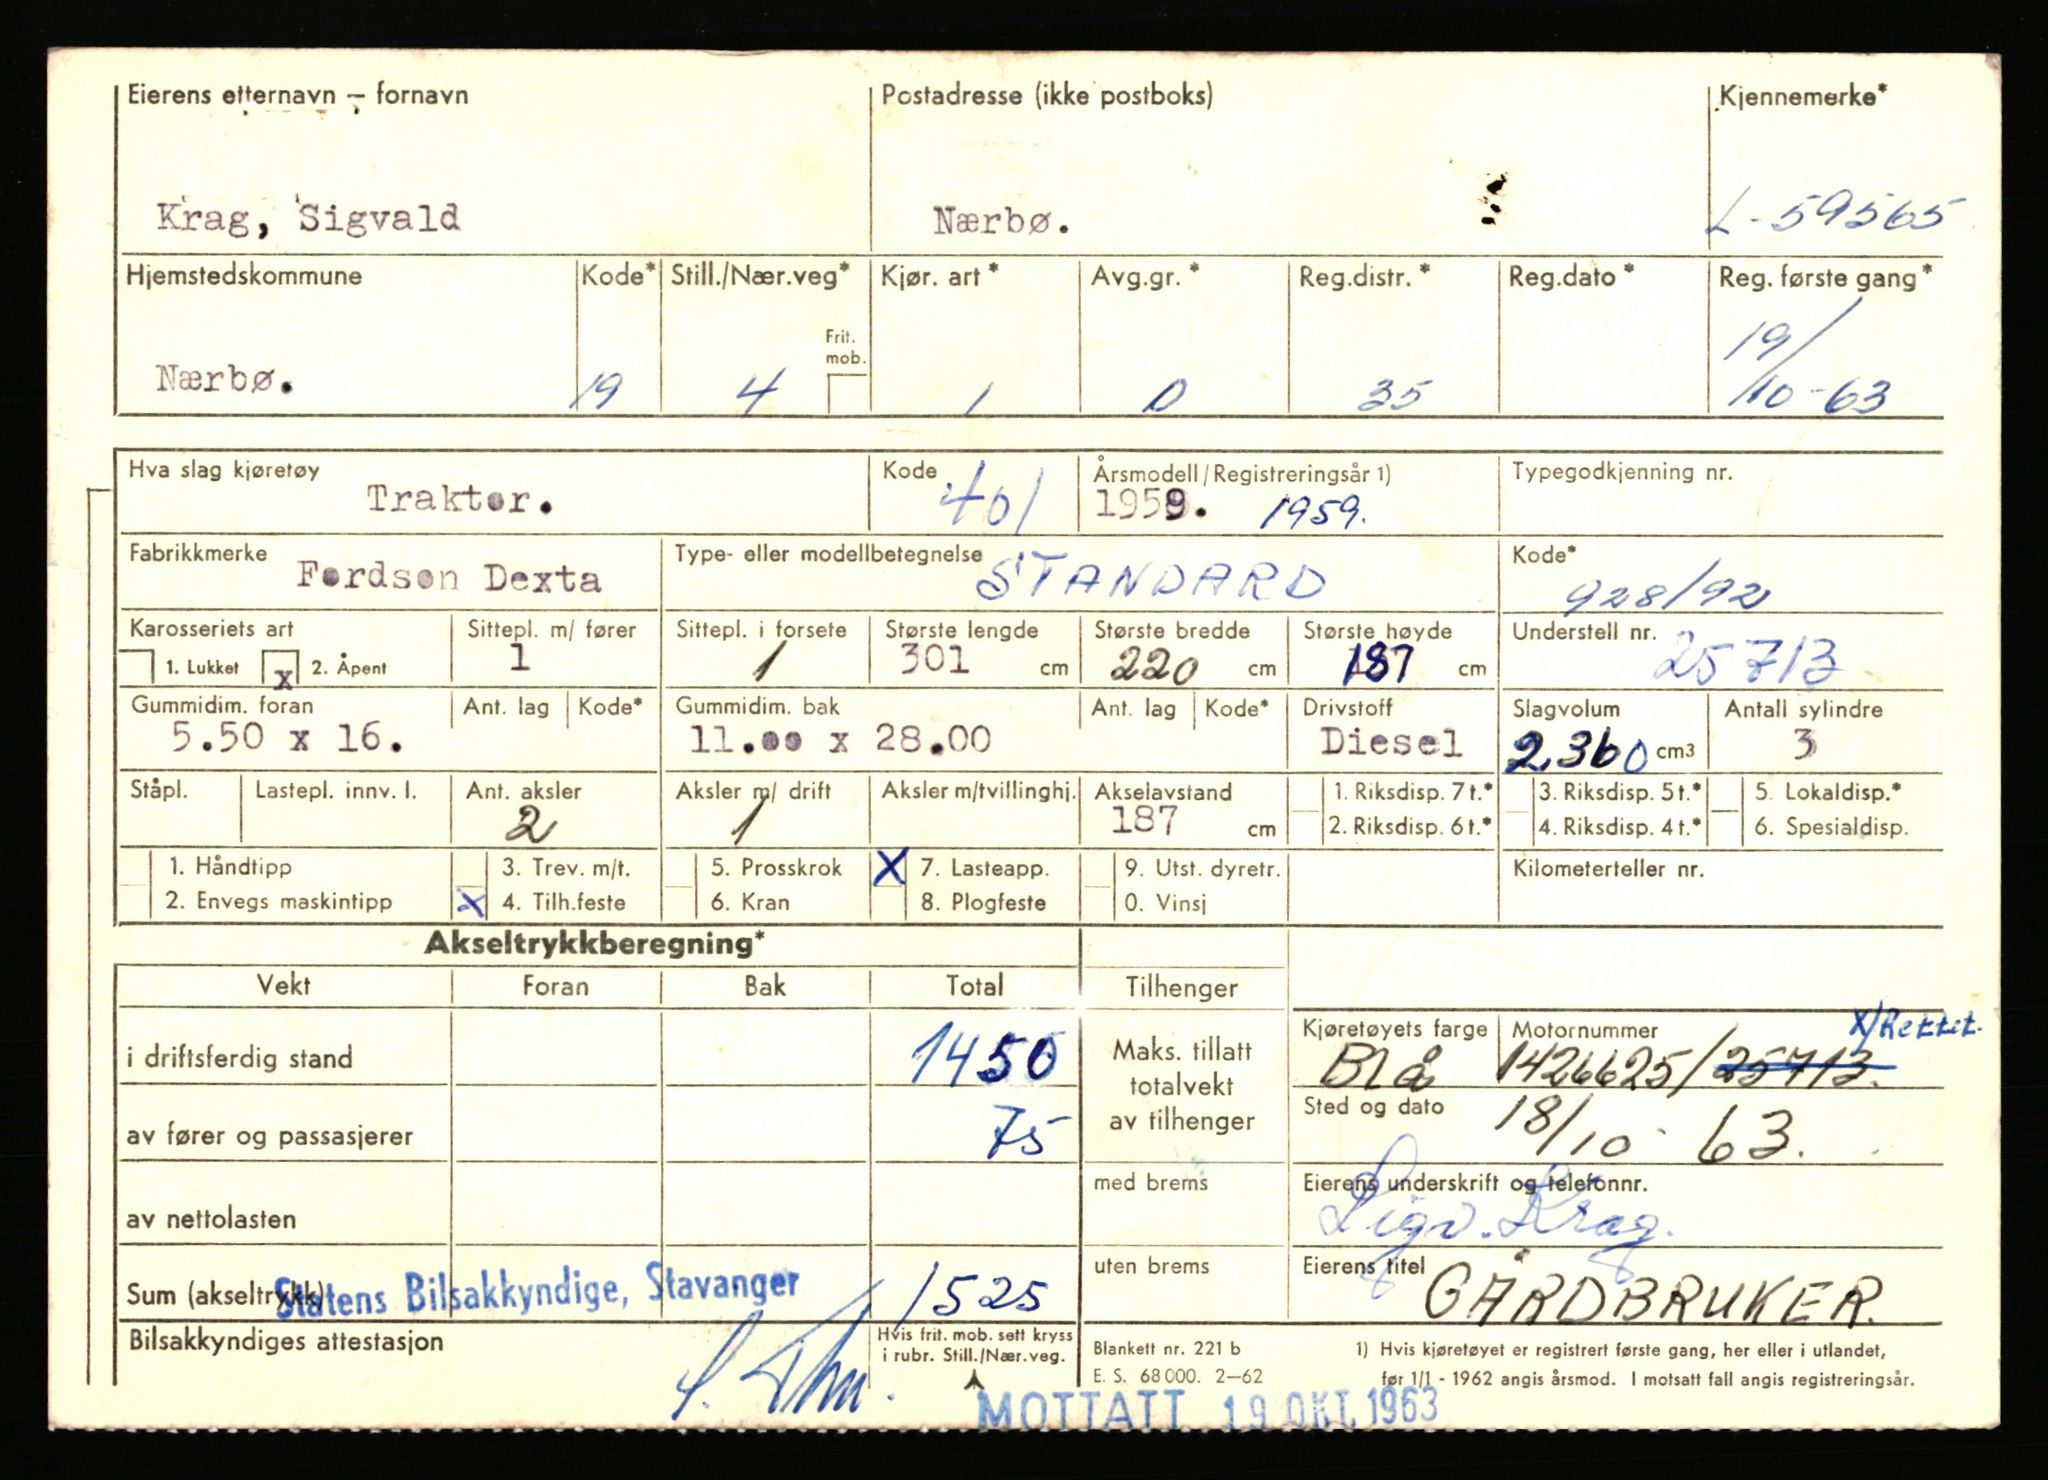 Eierens etternavn – fornavn Postadresse (ikke postboks) Kjennemerke*
Krag, Sigvald Nærbø. L-59565
Hjemstedskommune Kode* Still./Nær.veg* Kjør. art* Avg.gr.* Reg.distr.* Reg.dato* Reg. første gang*
Frit. mob.
Nærbø. 19 4 1 D 35 19/10-63
Hva slag kjøretøy Kode Årsmodell/Registreringsår 1) Typegodkjenning nr.
Traktor. 401 1959. 1959.
Fabrikkmerke Type- eller modellbetegnelse Kode*
Fordson Dexta STANDARD 928/92
Karosseriets art Sittepl. m/ fører Sittepl. i forsete Største lengde Største bredde Største høyde Understell nr.
1. Lukket x 2. Åpent 1 1 301 cm 220 cm 187 cm 25713
Gummidim. foran Ant. lag Kode* Gummidim. bak Ant. lag Kode* Drivstoff Slagvolum Antall sylindre
5.50 x 16. 11.00 x 28.00 Diesel 2360 cm3 3
Ståpl. Lastepl. innv. l. Ant. aksler Aksler m/ drift Aksler m/tvillinghj. Akselavstand 1. Riksdisp. 7 t.* 3. Riksdisp. 5 t.* 5. Lokaldisp.*
2 1 187 cm 2. Riksdisp. 6 t.* 4. Riksdisp. 4 t.* 6. Spesialdisp.
1. Håndtipp 3. Trev. m/t. 5. Prosskrok X 7. Lasteapp. 9. Utst. dyretr. Kilometerteller nr.
2. Envegs maskintipp X 4. Tilh.feste 6. Kran 8. Plogfeste 0. Vinsj
Akseltrykkberegning*
Vekt Foran Bak Total Tilhenger
X/Rettet.
Kjøretøyets farge Motornummer
i driftsferdig stand 1450 Maks. tillatt totalvekt av tilhenger Blå 1426625/25713.
Sted og dato
av fører og passasjerer 75 18/10 63.
med brems Eierens underskrift og telefonnr.
av nettolasten Sigv. Krag.
uten brems Eierens titel
Sum (akseltrykk) Statens Bilsakkyndige, Stavanger 1525 GÅRDBRUKER.
Bilsakkyndiges attestasjon Hvis frit. mob. sett kryss i rubr. Still./Nær.veg.
Blankett nr. 221 b 1) Hvis kjøretøyet er registrert første gang, her eller i utlandet,
E. S. 68 000. 2–62 før 1/1 - 1962 angis årsmod. I motsatt fall angis registreringsår.
MOTTATT 19 OKT. 1963